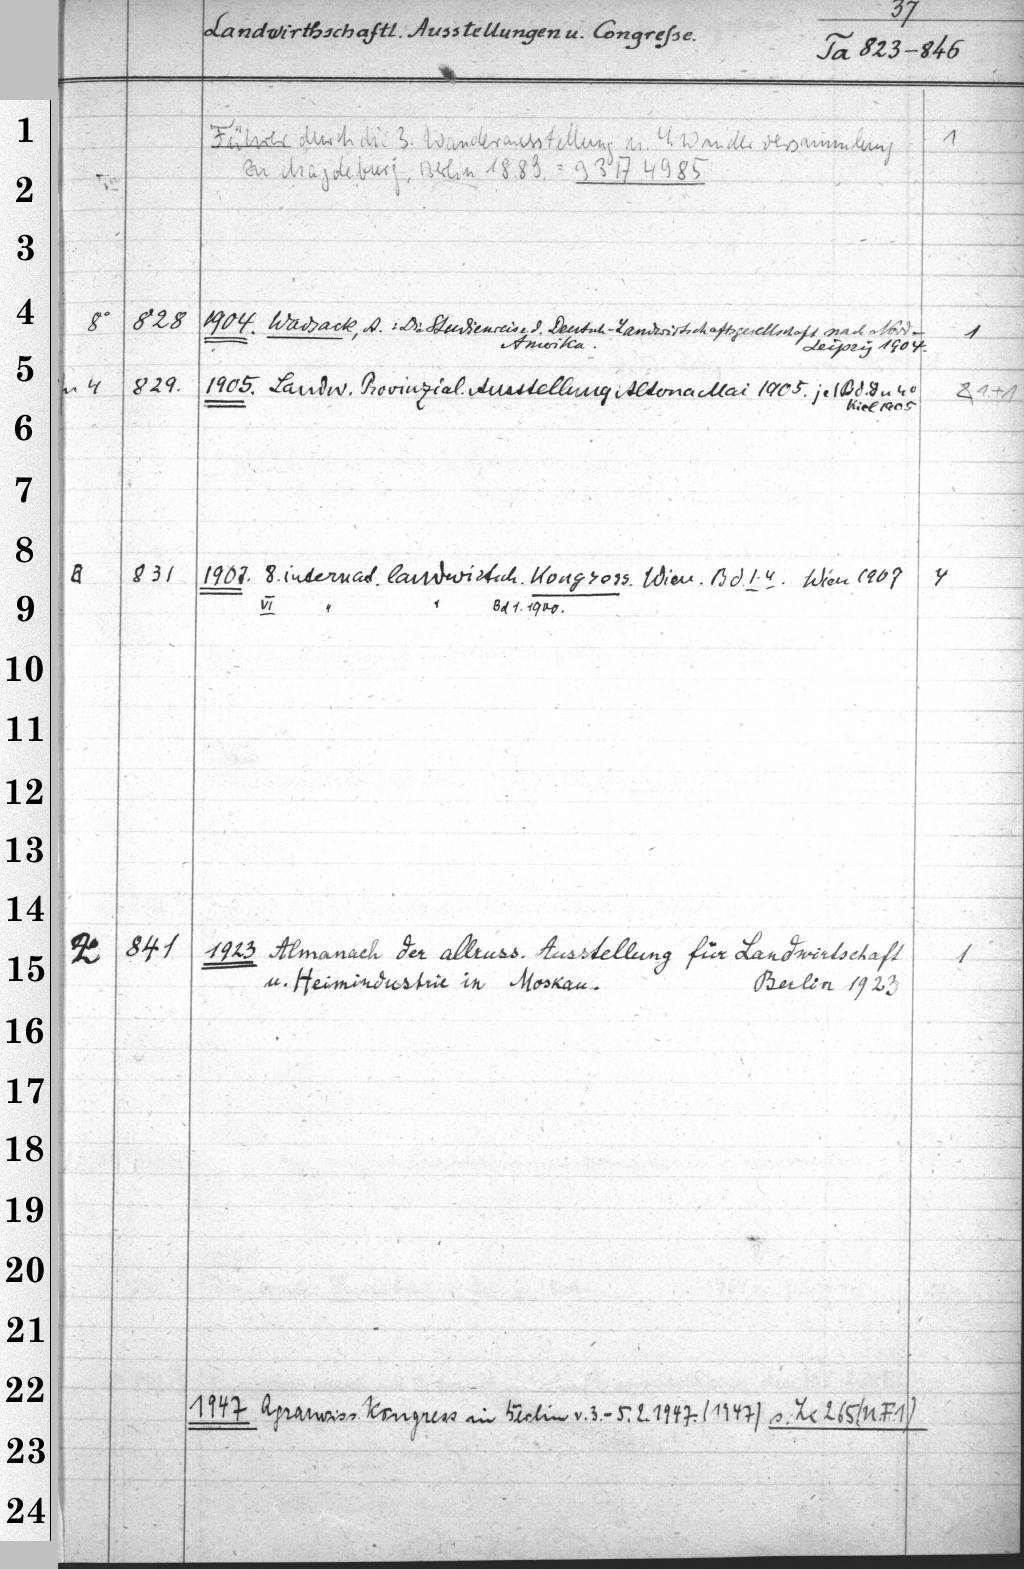 37
Landwirthschaftl. Ausstellungen u. Congresse.
Ta 823-846
1 Führer durch die 3. Wanderausstellung u. 4. Wanderversammlung 1
2 zu Magdeburg, Berlin 1883 = 93 A 4985
3
4 8° 828 1904. Wadsack, A.: Die Studienreise d. Deutsch. Landwirtschaftsgesellschaft nach Nord- 1
Amerika. Leipzig 1904.
5 u 4 829. 1905. Landw. Provinzial. Ausstellung Altona Mai 1905. je 1 Bd. 8 u 4° 1+1
Kiel 1905
6
7
8 8 831 1907. 8. internat. landwirtsch. Kongress. Wien. Bd. 1-4. Wien 1907 4
9 VI " " Bd 1. 1900.
10
11
12
13
14
15 2° 841 1923 Almanach der allruss. Ausstellung für Landwirtschaft 1
u. Heimindustrie in Moskau. Berlin 1923
16
17
18
19
20
21
22
1947 Agrarwiss. Kongress in Berlin v. 3.-5. 2. 1947. (1947) s. Zc 265 (N.F. 1)
23
24